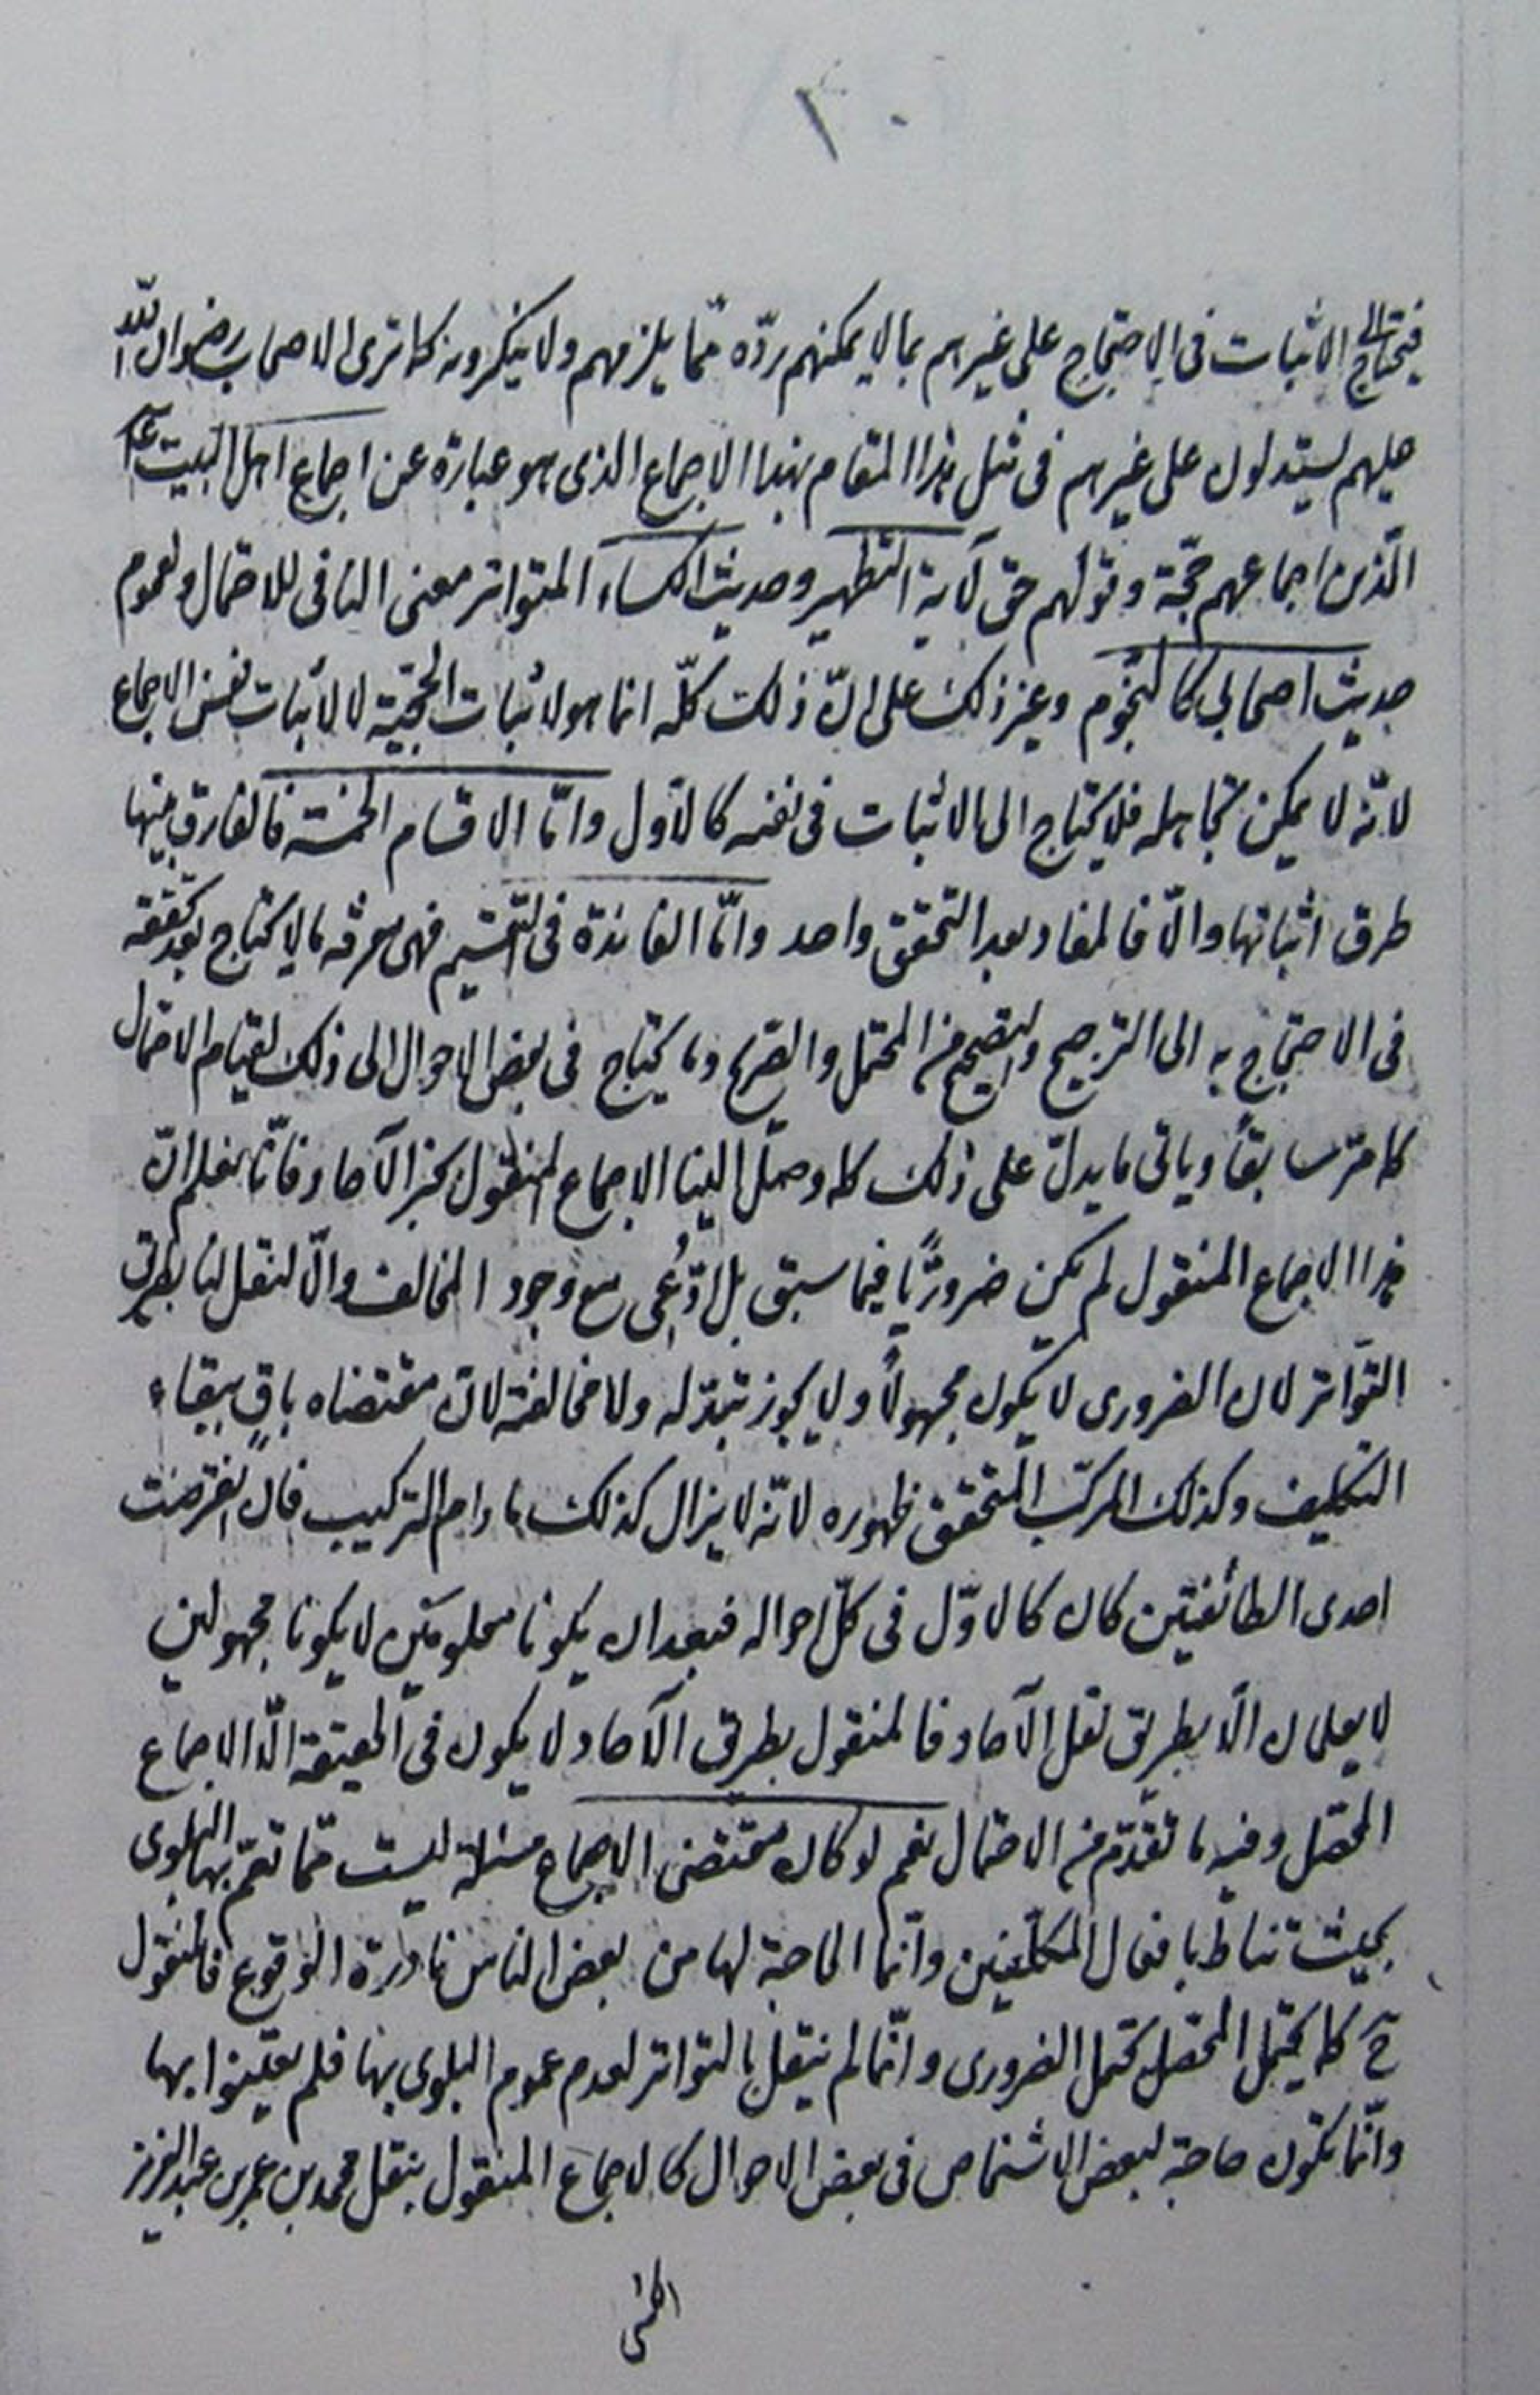 ١٠
فيحتاج الى الاثبات فى الاحتجاج على غيرهم بما لا يمكنهم ردّه ممّا يلزمهم ولا ينكرونه كما ترى الاصحاب رضوان اللّه
عليهم يستدلون على غيرهم فى مثل هذا المقام بهذا الاجماع الذى هو عبارة عن اجماع اهل البيت ع
الّذين اجماعهم حجّة وقولهم حق لآية التطهير وحديث الكساء المتواتر معنى النافى للاحتمال ولعموم
حديث اصحابى كالنجوم وغير ذلك على انّ ذلك كلّه انما هو لاثبات الحجّيّة لا لاثبات نفس الاجماع
لانّه لا يمكن تجاهله فلا يحتاج الى الاثبات فى نفسه كالاول وامّا الاقسام الخمسة فالفارق بينها
طرق اثباتها والّا فالمفاد بعد التحقق واحد وامّا الفائدة فى التقسيم فهى معرفة ما لا يحتاج بعد تحققه
فى الاحتجاج به الى الترجيح والتصحيح من المحتمل والصريح وما يحتاج فى بعض الاحوال الى ذلك لقيام الاحتمال
كما مرّ سابقاً وياتى ما يدلّ على ذلك كما وصل الينا الاجماع المنقول بخبر الآحاد فانّا نعلم انّ
هذا الاجماع المنقول لم يكن ضروريًّا فيما سبق بل ادُّعِى مع وجود المخالف والّا لنقل لنا بطريق
التواتر لان الضرورى لا يكون مجهولاً ولا يجوز تبدّله ولا مخالفته لانّ مقتضاه باقٍ ببقاء
التكليف وكذلك المركّب المتحقق ظهوره لانّه لا يزال كذلك ما دام التركيب فان انقرضت
احدى الطائفتين كان كالاوّل فى كلّ احواله فبعد ان يكونا معلومين لا يكونا مجهولين
لا يعلمان الّا بطريق نقل الآحاد فالمنقول بطريق الآحاد لا يكون فى الحقيقة الّا الاجماع
المحصّل وفيه ما تقدّم من الاحتمال نعم لو كان مقتضى الاجماع مسئلة ليست ممّا تعمّ بها البلوى
بحيث تناط بافعال المكلّفين وانّما الحاجة لها من بعض الناس نادرة الوقوع فالمنقول
ح كما يحتمل المحصّل يحتمل الضرورى وانّما لم ينقل بالتواتر لعدم عموم البلوى بها فلم يعتنوا بها
وانّما تكون حاجة لبعض الاشخاص فى بعض الاحوال كالاجماع المنقول بنقل محمد بن عمر بن عبد العزيز
الكشى